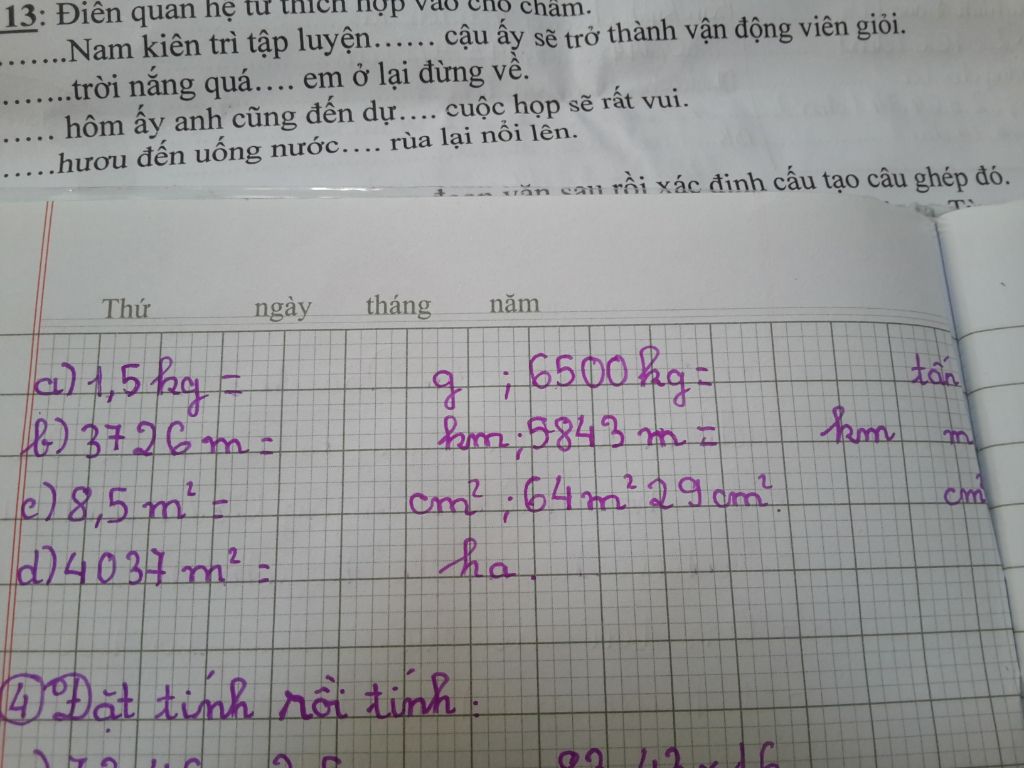 13: Điền quan hệ từ thích hợp vào chỗ chấm.
.......Nam kiên trì tập luyện...... cậu ấy sẽ trở thành vận động viên giỏi.
.......trời nắng quá.... em ở lại đừng về.
..... hôm ấy anh cũng đến dự.... cuộc họp sẽ rất vui.
.....hươu đến uống nước.... rùa lại nổi lên.
văn sau rồi xác định cấu tạo câu ghép đó.
Thứ ngày tháng năm
a) 1,5 kg = g ; 6500 kg = tấn
b) 3726 m = km ; 5843 m = km m
c) 8,5 m² = cm² ; 64 m² 29 cm² cm²
d) 4037 m² = ha.
4 Đặt tính rồi tính: